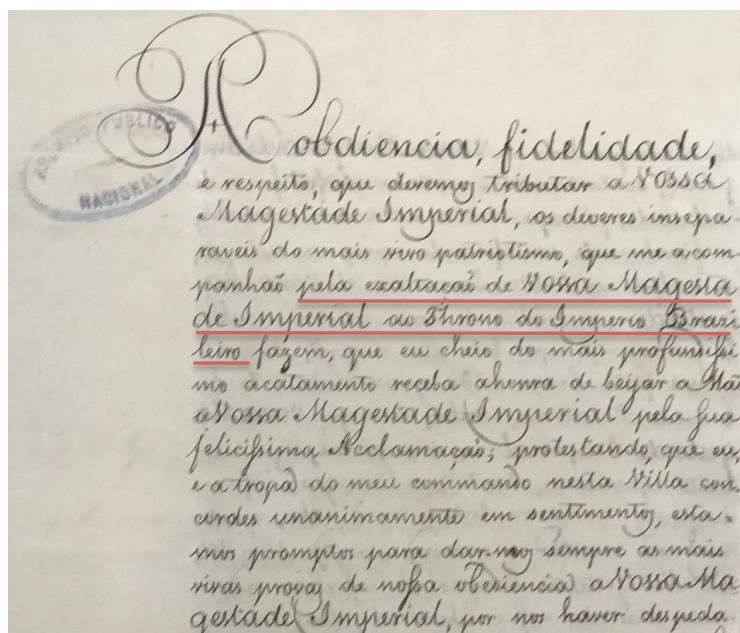 ARCHIVO PUBLICO
NACIONAL
A obdiencia, fidelidade,
e respeito, que devemos tributar a Vossa
Magestade Imperial, os deveres insepa
raveis do mais vivo patriotismo, que me acom
panhaõ pela exaltaçaõ de Vossa Magesta
de Imperial ao Throno do Imperio Brazi
leiro fazem, que eu cheio do mais profundissi
mo acatamento receba ahonra de beijar a Maõ
a Vossa Magestade Imperial pela sua
felicissima Acclamaçaõ; protestando, que eu,
e a tropa do meu commando nesta Villa con
cordes unanimamente em sentimentos, esta-
mos promptos para dar-mos sempre as mais
vivas provas de nossa obesiencia a Vossa Ma
gestade Imperial, por nos haver despeda